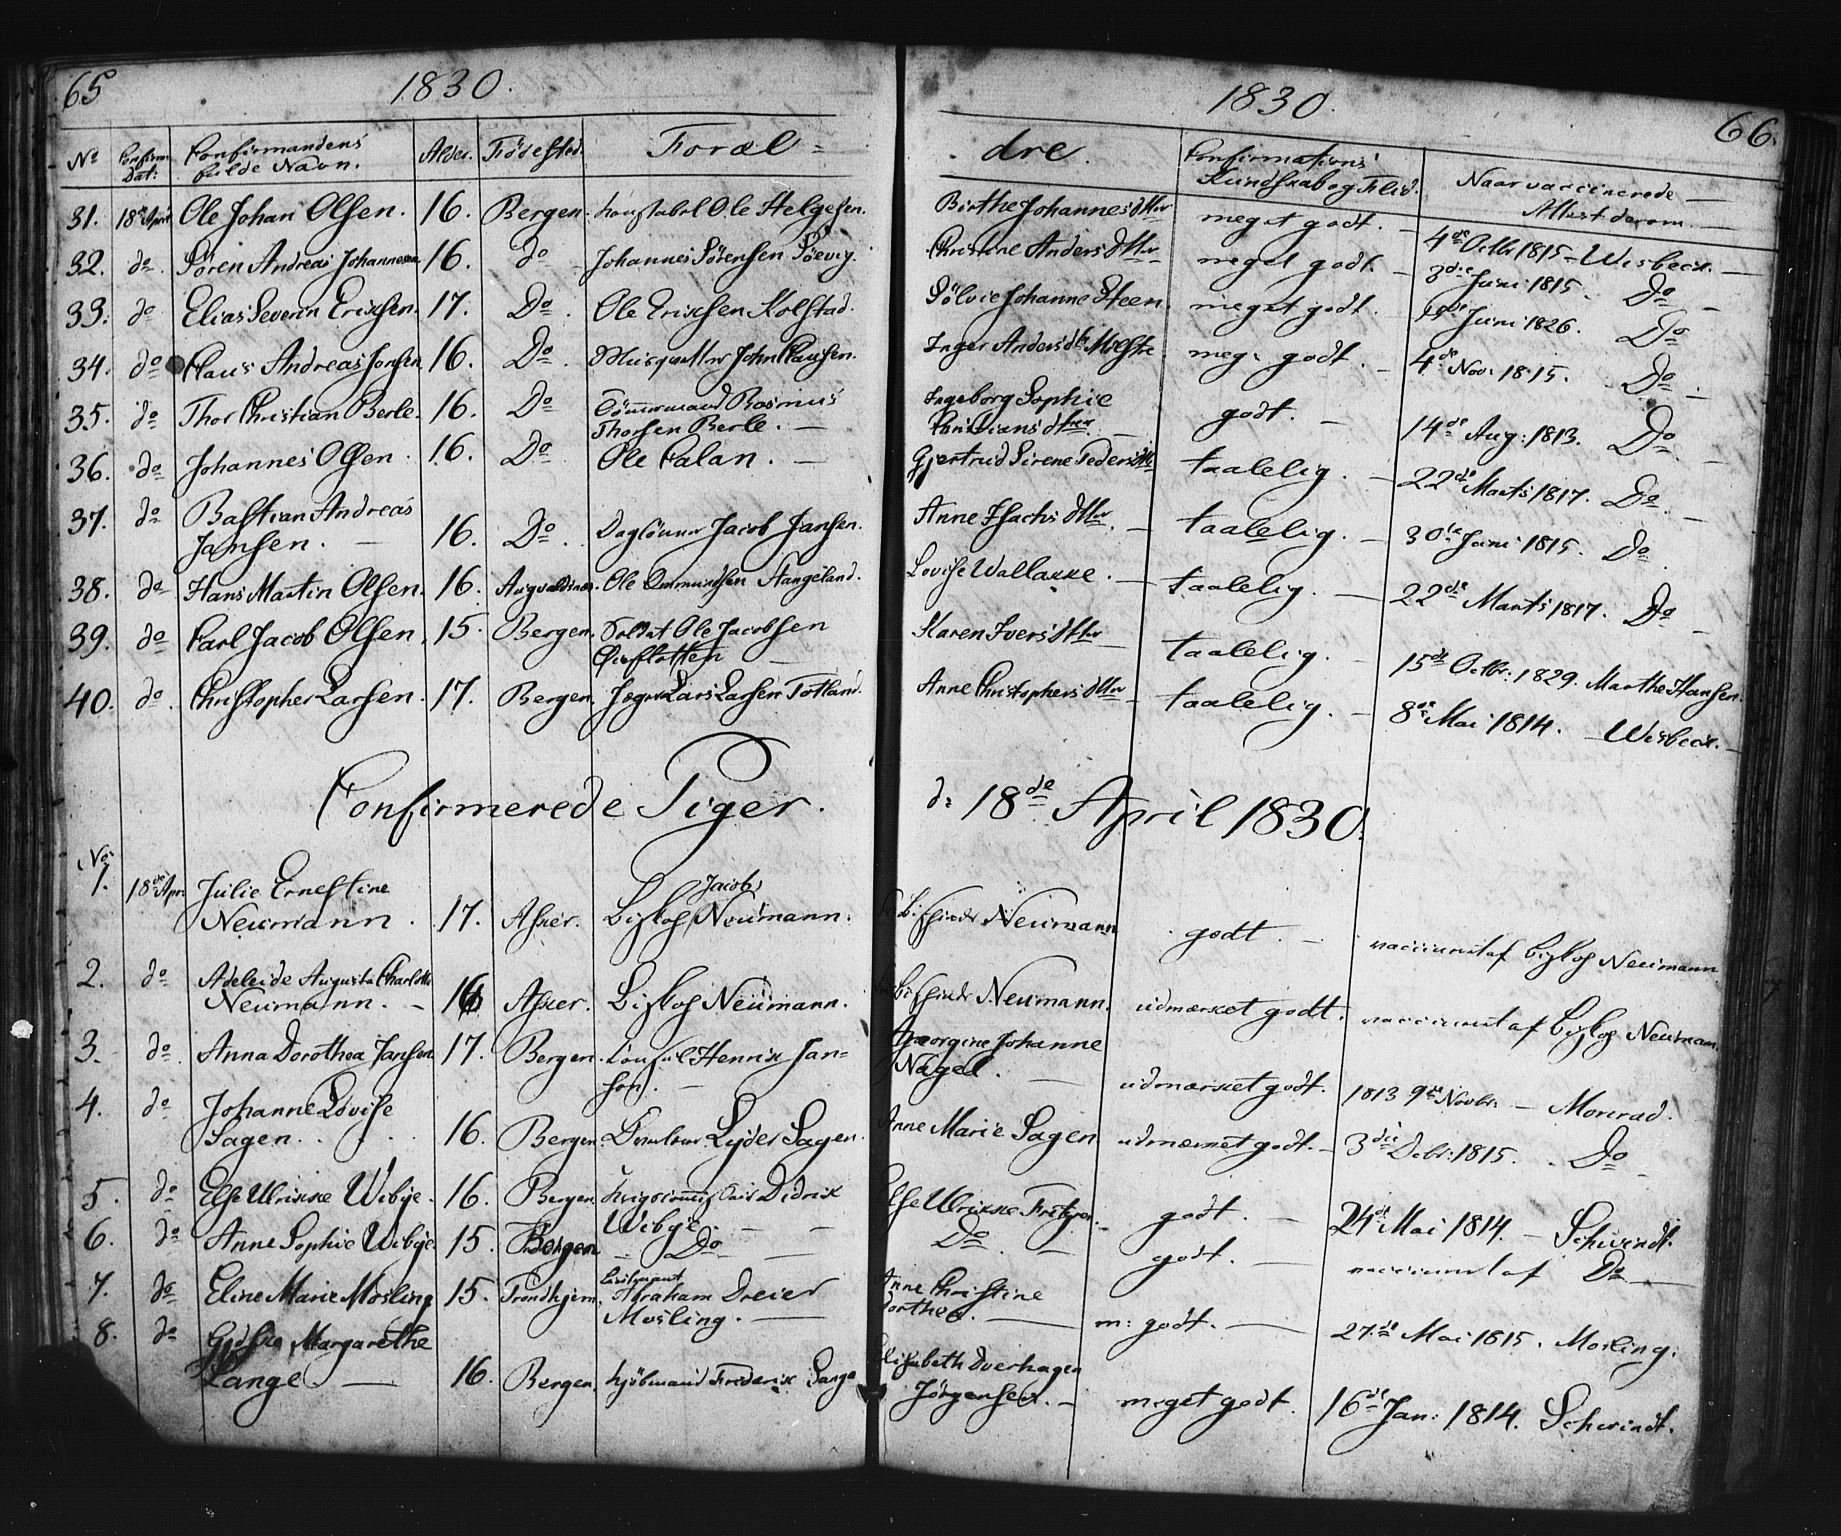 65 1830.
No Confirm. Dat: Confirmandens fulde Navn. Alder. Fødested. Foræl=
31. 18de April Ole Johan Olsen. 16. Bergen. Konstabel Ole Helgesen.
32. do Søren Andreas Johannesen 16. do Johannes Sørensen Søevig.
33. do Elias Severin Erichsen. 17. Do Ole Erichsen Kolstad.
34. do Claus Andreas Jonsen 16. Do Musqueteer John Clausen.
35. do Thor Christian Berle. 16. Do Tømmermand Rasmus
Thorsen Berle.
36. do Johannes Olsen. 16. Do Ole Falan.
37. do Bastian Andreas
Jansen. 16. Do Daglønner Jacob Jansen.
38. do Hans Martin Olsen. 16. Augvaldsnæs. Ole Ommundsen Stangeland.
39. do Carl Jacob Olsen. 15. Bergen. Soldat Ole Jacobsen
40. do Christopher Larsen. 17. Bergen. Lars Larsen Totland.
Confirmerede Piger.
No
1. 18de Apr: Julie Ernestine
Neumann. 17. Asker. Biskop Jacob Neumann.
2. do Adeleide Augusta Charlotte
Neumann. 16 Asker. Biskop Neumann.
3. do Anna Dorothea Jansen 17. Bergen. Consul Henrik Jan=
sen.
4. do Johanne Lovise
Sagen. 16. Bergen. Lyder Sagen.
5. do Else Ulrikke Wibye. 16. Bergen. Krigscommissair Didrik
Wibye.
6. do Anne Sophie Wibye 15. Bergen Do
7. do Eline Marie Mosling 15. Trondhjem. Lieutnant
Abraham Dreier
Mosling.
8. do Margarethe
Lange 16. Bergen. Kjøbmand Frederik Lange
1830. 66.
dre. Confirmations' Kundskab og Flid. Naar vaccinerede
Attest derom
Birthe Johannesdtter meget godt. 4de Octbr 1815 Wisbech.
Christine Andersdtter meget godt. 3die Juni 1815. Do
Sølvie Johanne Steen. meget godt. Juni 1826. Do
Inger Andersdtr Molstre meg: godt. 4de Nov: 1815. Do
Ingeborg Sophie
Christiansdtter. godt. 14de Aug: 1813. Do
Gjertrud Sirene Pedersdttr taalelig. 22de Marts 1817. Do
Anne Isachsdtter. taalelig. 30te Juni 1815. Do
Lovise Wallacke. taalelig. 22de Marts 1817. Do
Karen Iversdtter taalelig. 15de Octbr. 1829. Marthe Hansen.
Anne Christophersdtter taalelig. 8de Mai 1814. Wisbech.
d: 18de April 1830.
Neumann godt. vaccineret af Biskop Neumann
Neumann. udmærket godt. vaccineret af Biskop Neumann.
Georgine Johanne
Nagel. udmærket godt. 1813 9de Novbr. Monrad.
Anne Marie Sagen udmærket godt. 3die Debr: 1815. Do
Else Ulrikke godt. 24de Mai 1814. Schwindt.
Do godt. vaccineret af Do
Anne Christine
Dorthea. m: godt. 27de Mai 1815. Mosling.
Elisabeth Overhagen
Jørgensen. meget godt. 16de Jan: 1814. Schwindt.